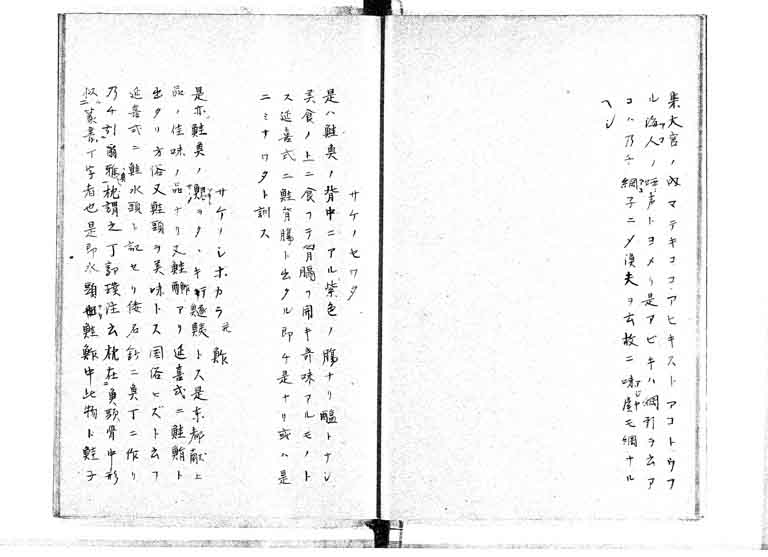 集大宮ノ内マテキコユアヒキストアコトヽノフ
ル海人ノ呼声トヨメリ是アビキハ網引ヲ云ア
コハ乃チ網子ニシ漁夫ヲ云故ニ味 モ網ナル
ヘシ
サケノセワタ
是ハ鮭奥ノ背中ニアル紫色ノ腸ナリ醢トナシ
美食ノ上ニ食フテ胃腸ヲ開キ奇味アルモノト
ス延喜式ニ鮭背腸ト出タル即チ是ナリ或ハ是
ニミナワタト訓ス
サケノシホカラ 元鮓
是亦鮭奥ノ ヲタヽキ トス是東都献上
品ノ佳味ノ品ナリ又鮭 アリ延喜式ニ鮭鮨ト
出タリ方俗又鮭頭ヲ美味トス国俗ヒズト云フ
延喜式ニ鮭水頭ト記セリ倭名鈔ニ奥丁ニ作リ
乃チ引爾雅枕謂之丁郭璞注云枕在魚頭骨中形
似篆書丁字者也是即氷頭 鮭鮓中此物ト鮭子